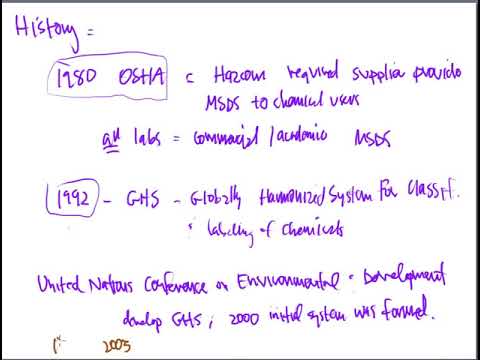 History =
1980 OSHA c Hazcom required supplier provide
MSDS to chemical users
all labs = commercial / academic MSDS
1992 - GHS - Globally Harmonized System For Classif.
& labeling of chemicals
United Nations Conference on Environmental & Development
develop GHS ; 2000 initial system was formed.
2005